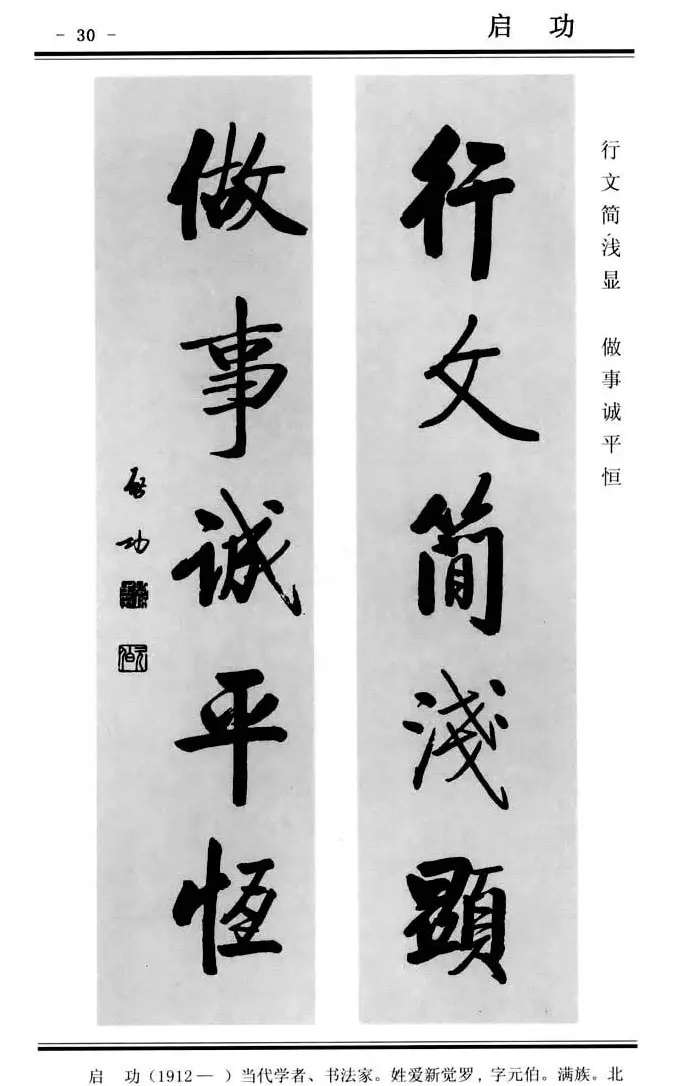 - 30 -
启 功
行文简浅显 做事诚平恒
行文简淺顯
做事诚平恆
启功
启 功（1912— ）当代学者、书法家。姓爱新觉罗，字元伯。满族。北